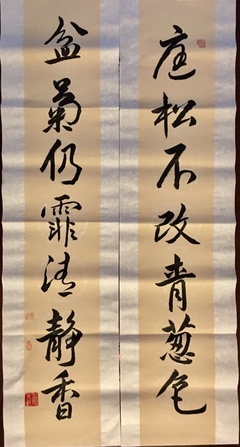 庭松不改青葱色
盆菊仍霏清静香